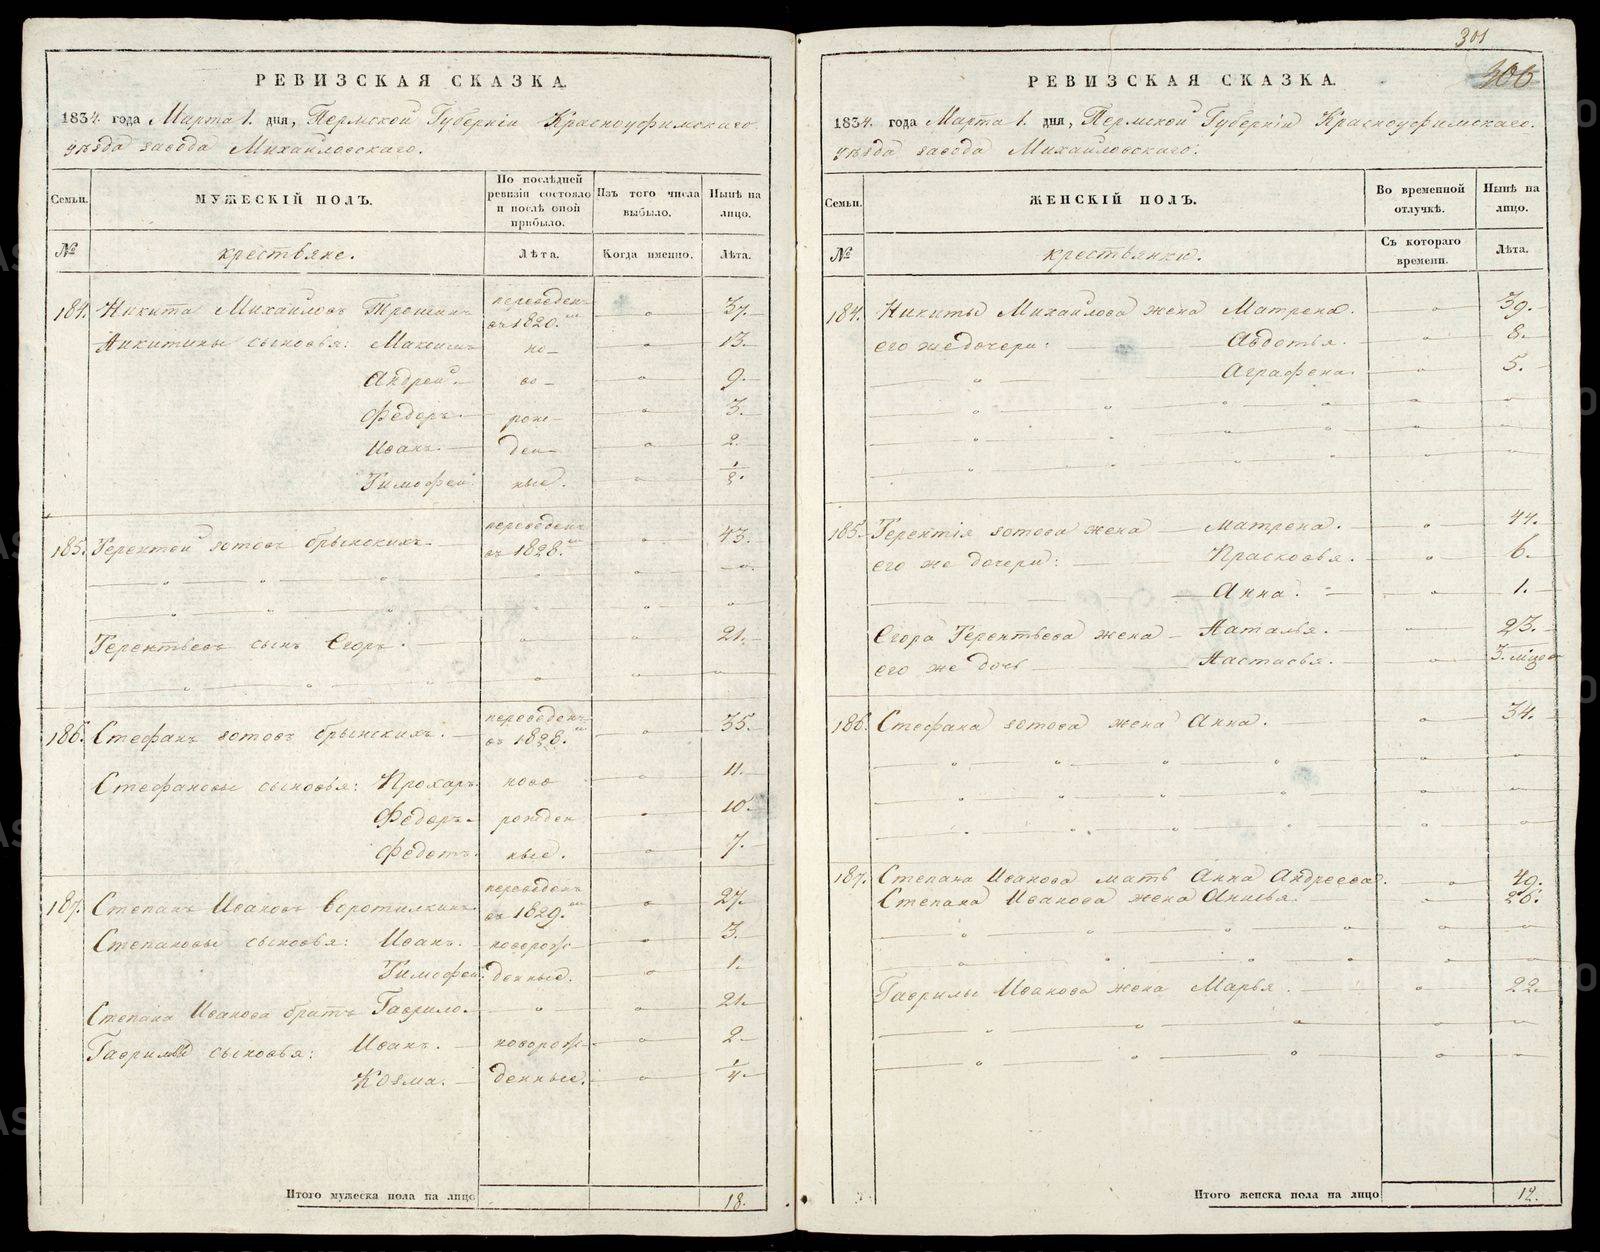 РЕВИЗСКАЯ СКАЗКА.
1834. года Марта 1. дня, Пермской Губернiи Красноуфимскаго
уѣзда завода Михайловскаго.
Семьи.
МУЖЕСКIЙ ПОЛЪ.
По послѣдней ревизiи состояло и послѣ оной прибыло.
Изъ того числа выбыло.
Нынѣ на лицо.
№
крестьяне.
Лѣта.
Когда именно.
Лѣта.
184. Никита Михайловъ Трошинъ переведенъ въ 1820.мъ 37.
Никитины сыновья: Максимъ но- 13.
Андрей во- 9.
Федоръ рож- 3.
Иванъ ден- 2.
Тимофей ные. 1/2.
185. Терентей Зотовъ брынскихъ переведенъ въ 1828.мъ 43.
Терентьевъ сынъ Егоръ. 21.
186. Стефанъ Зотовъ брынскихъ. переведенъ въ 1828.мъ 35.
Стефановы сыновья: Прохаръ ново 11.
Федоръ рожден 10.
Федотъ ные. 7.
187. Степанъ Ивановъ Воротилкинъ переведенъ въ 1829.мъ 27.
Степановы сыновья: Иванъ. новорож- 3.
Тимофей денные. 1.
Степана Иванова братъ Гаврило. 21.
Гаврилы сыновья: Иванъ. новорож- 2
Козма. денные. 1/4.
Итого мужеска пола на лицо 18.
301
306
РЕВИЗСКАЯ СКАЗКА.
1834. года Марта 1. дня, Пермской Губернiи Красноуфимскаго.
уѣзда завода Михайловскаго.
Семьи.
ЖЕНСКIЙ ПОЛЪ.
Во временной отлучкѣ.
Нынѣ на лицо.
№
крестьянки.
Съ котораго времени.
Лѣта.
184. Никиты Михайлова жена Матрена. 39.
его же дочери: Авдотья. 8.
Аграфена. 5.
185. Терентiя Зотова жена Матрена. 44.
его же дочери: Прасковья. 6.
Анна. 1.
Егора Терентьева жена Наталья. 23.
его же дочь Настасья. 3. мѣсяц
186. Стефана Зотова жена Анна. 34.
187. Степана Иванова мать Анна Андреева. 49.
Степана Иванова жена Анисья. 26.
Гаврилы Иванова жена Марья. 22.
Итого женска пола на лицо 12.